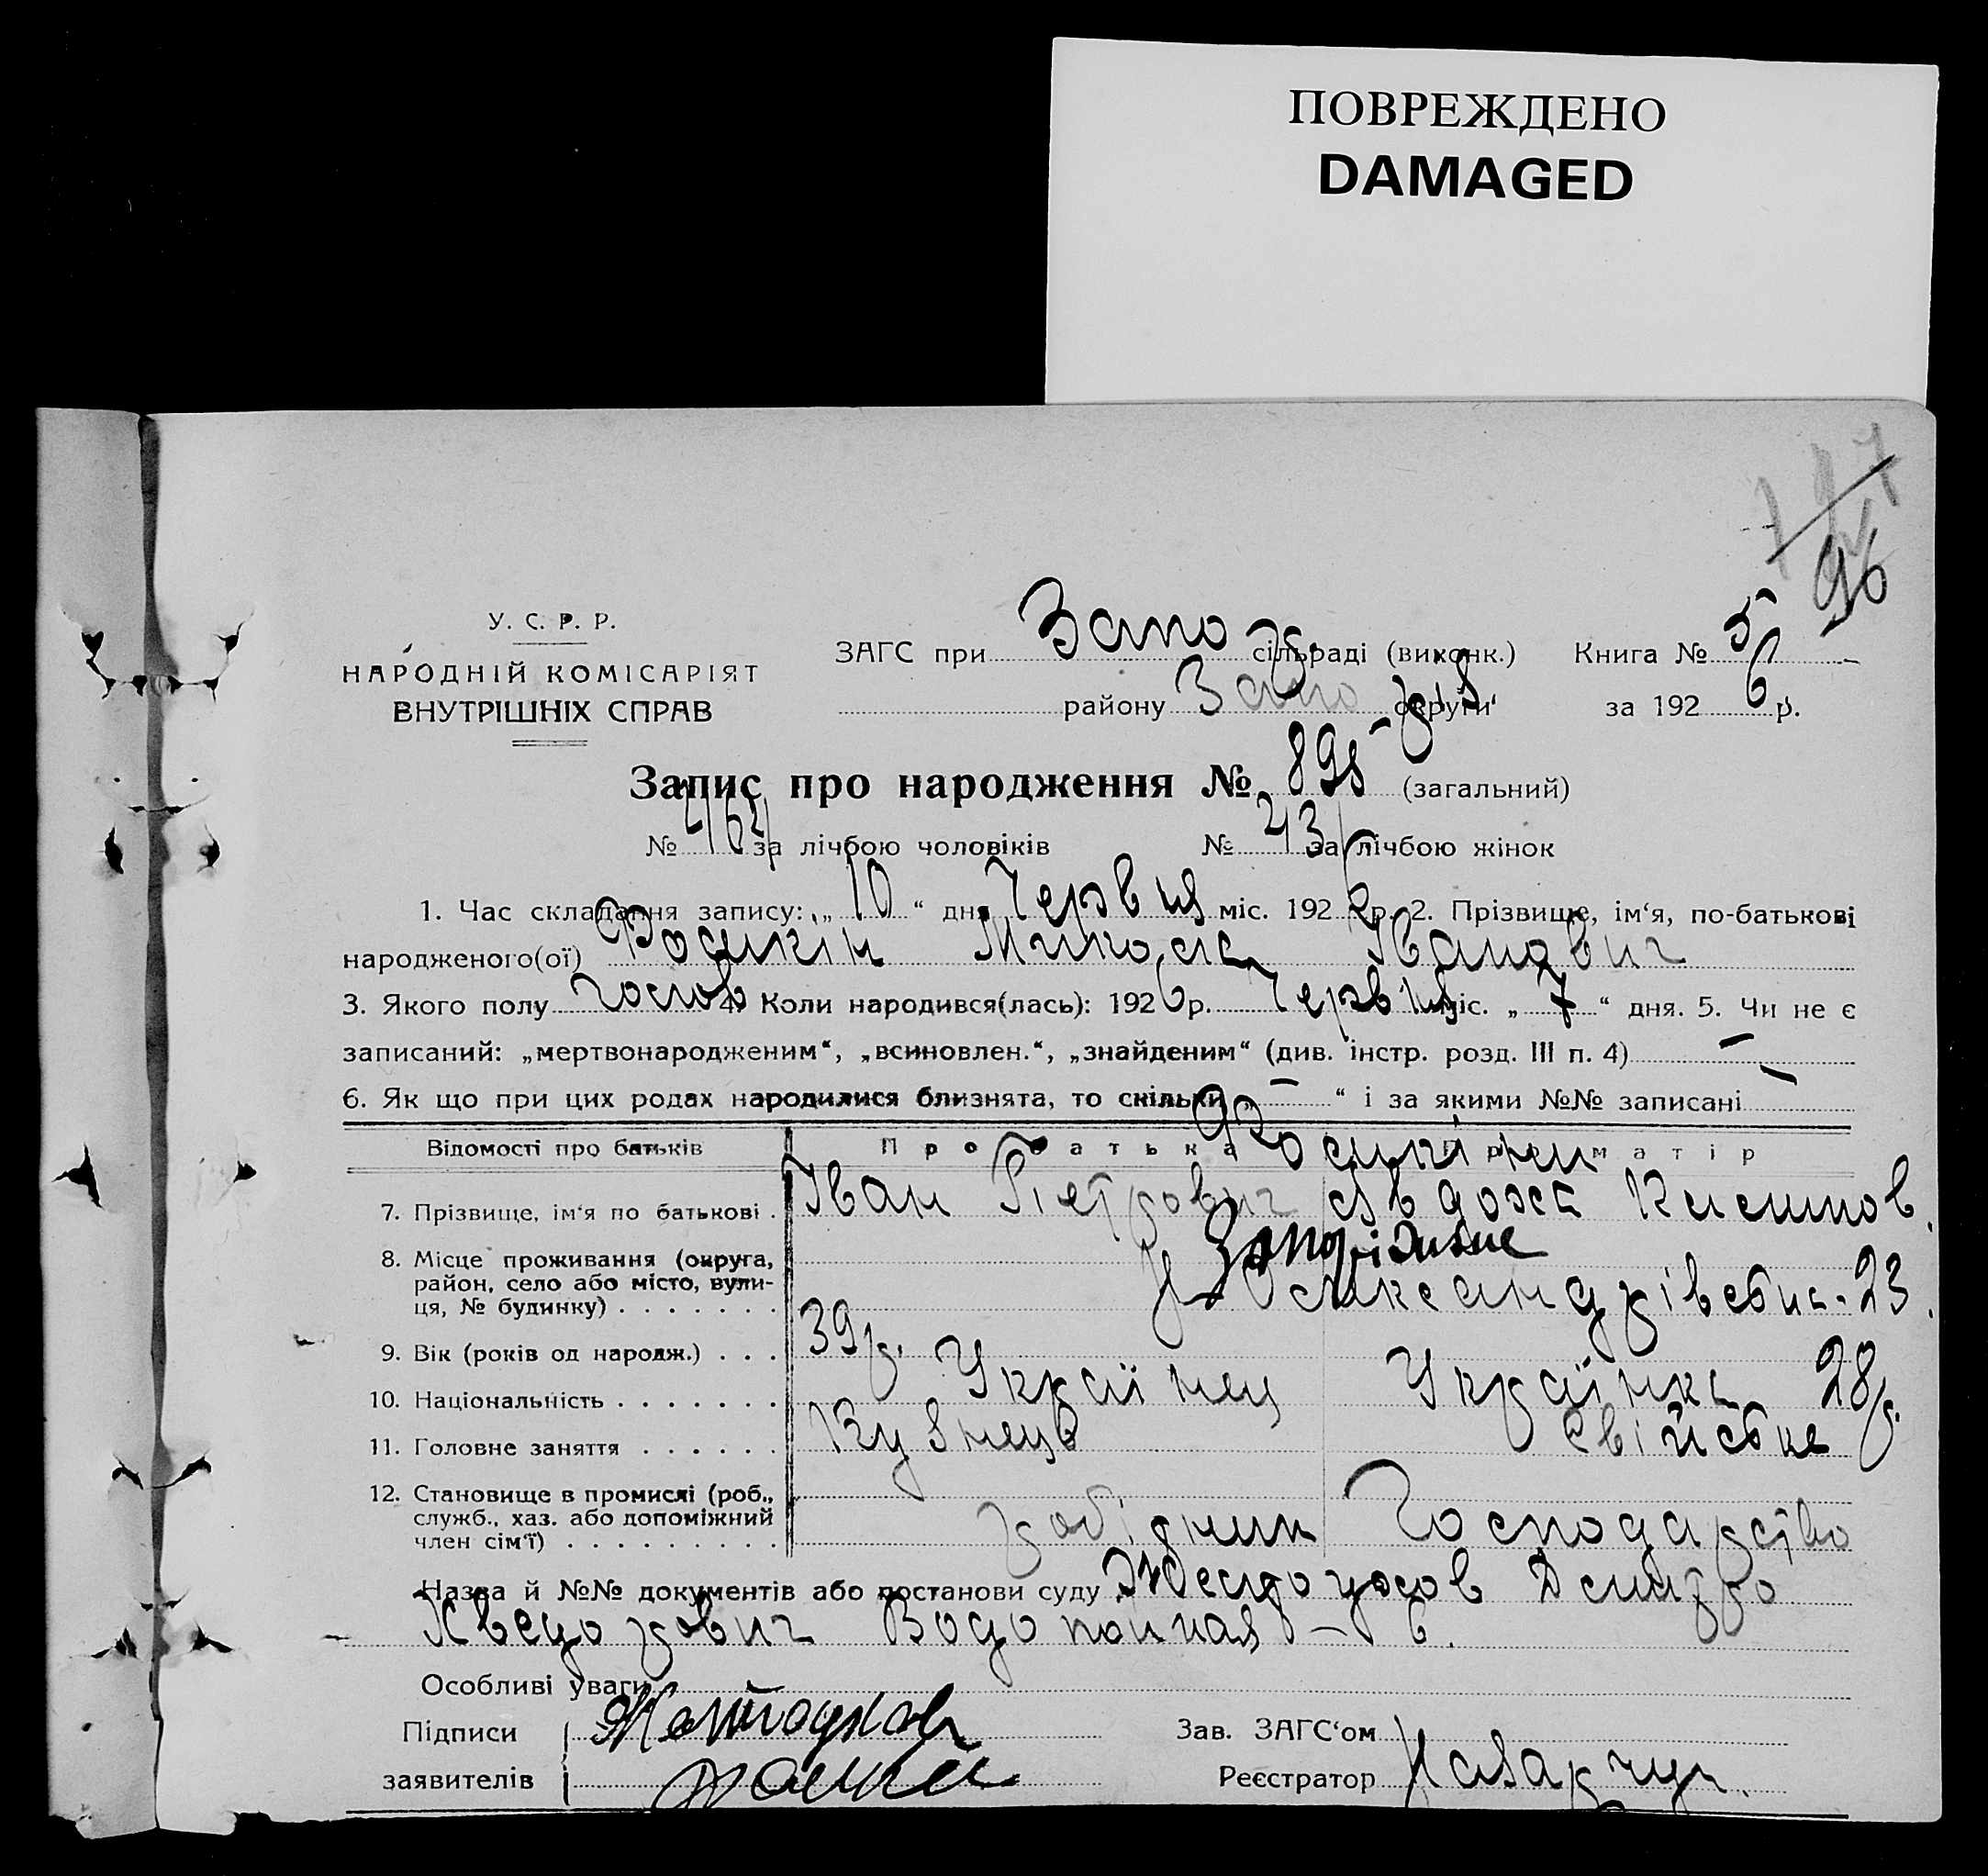 ПОВРЕЖДЕНО
DAMAGED
96
У. С. Р. Р.
НАРОДНІЙ КОМІСАРІЯТ
ВНУТРІШНІХ СПРАВ
ЗАГС при Запо сільраді (виконк.) Книга № 5
району Запо округи за 1926 р.
Запис про народження № 898 (загальний)
№ за лічбою чоловіків № за лічбою жінок
1. Час складання запису: „ 10 “ дня Червця міс. 1926 р. 2. Прізвище, ім‘я, по-батькові
народженого(ої) Фомкін Микола Іванович
3. Якого полу чолов 4. Коли народився(лась): 1926 р. Червця міс. „ 7 “ дня. 5. Чи не є
записаний: „мертвонародженим“, „всиновлен.“, „знайденим“ (див. інстр. розд. III п. 4) —
6. Як що при цих родах народилися близнята, то скільки „ — “ і за якими №№ записані —
Відомості про батьків Про батька Про матір
7. Прізвище, ім‘я по батькові . Іван Петрович Явдоха
8. Місце проживання (округа, Запоріжже
район, село або місто, вули-
ця, № будинку) . . . . . . . Олександрівська - 23.
9. Вік (років од народж.) . . . 39 р. 28 р.
10. Національність . . . . . . . Українец Українка
11. Головне заняття . . . . . . Кузнець свійське
12. Становище в промислі (роб.,
служб., хаз. або допоміжний
член сім‘ї) . . . . . . . . . робідник Господарство
Назва й №№ документів або постанови суду
Водопойная – 6.
Особливі уваги
Підписи Зав. ЗАГС‘ом
заявителів Реєстратор